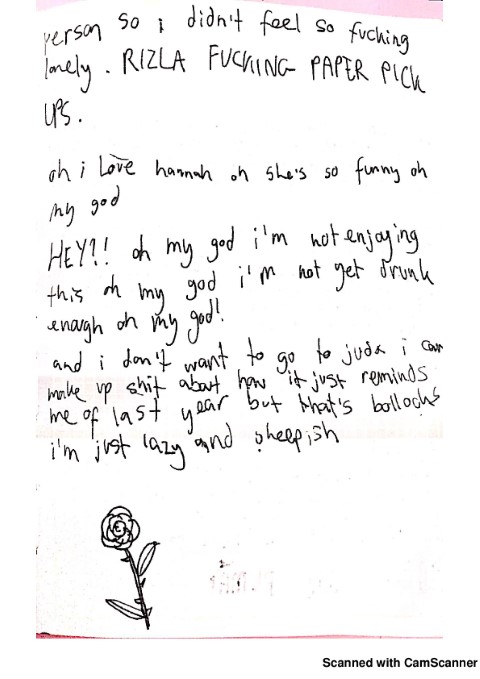 person so i didn't feel so fucking
lonely. RIZLA FUCKING PAPER PICK
UPS.
oh i love hannah oh she's so funny oh
my god
HEY?! oh my god i'm not enjoying
this oh my god i'm not get drunk
enough oh my god!
and i don't want to go to juda i can
make up shit about how it just reminds
me of last year but that's bollocks
i'm just lazy and sheepish
Scanned with CamScanner